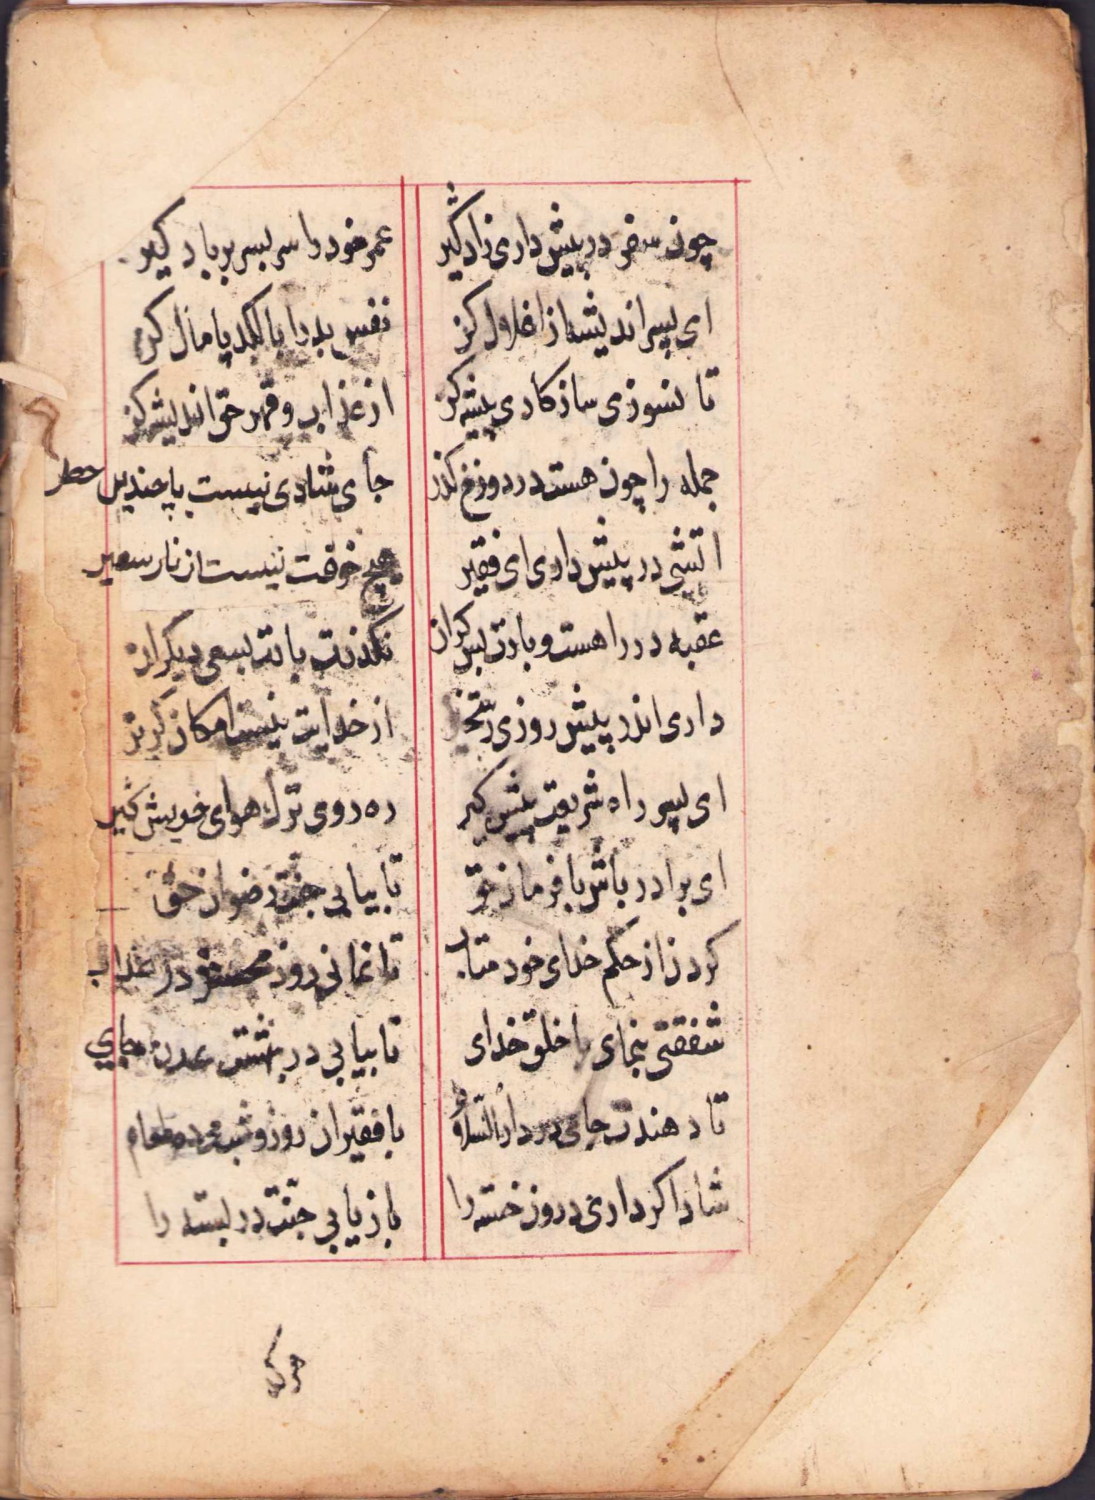 چون سفر در پیش داری زاد گیر
عمر خود را سر بسر بر باد گیر
ای پسر اندیشه از اغلال کن
نفس بد را با لکد پامال کن
تا نسوزی ساز کاری پیشه کن
از عذاب و قهر حق اندیشه کن
جمله را چون هست در دوزخ کذر
جای شادی نیست با چندین خطر
اتشی در پیش داری ای فقیر
هیچ خوفت نیست از نار سعیر
عقبه در راهست و بارت بس کران
نکذرت بارت بسعی دیکران
داری اندر پیش روزی رستخیز
از خدایت نیست امکان کریز
ای پسر راه شریعت پیش کیر
ره روی ترک هوای خویش کیر
ای برادر باش با فرمان حق
تا بیابی جنت و رضوان حق
کردن از حکم خدای خود متاب
تا نمانی روز محشر در عذاب
شفقتی بنمای با خلق خدای
تا بیابی در بهشت عدن جای
تا دهندت جای در دار السلام
با فقیران روز و شب می ده طعام
شاد اکر داری درون خسته را
باز یابی جنت در بسته را
هر که